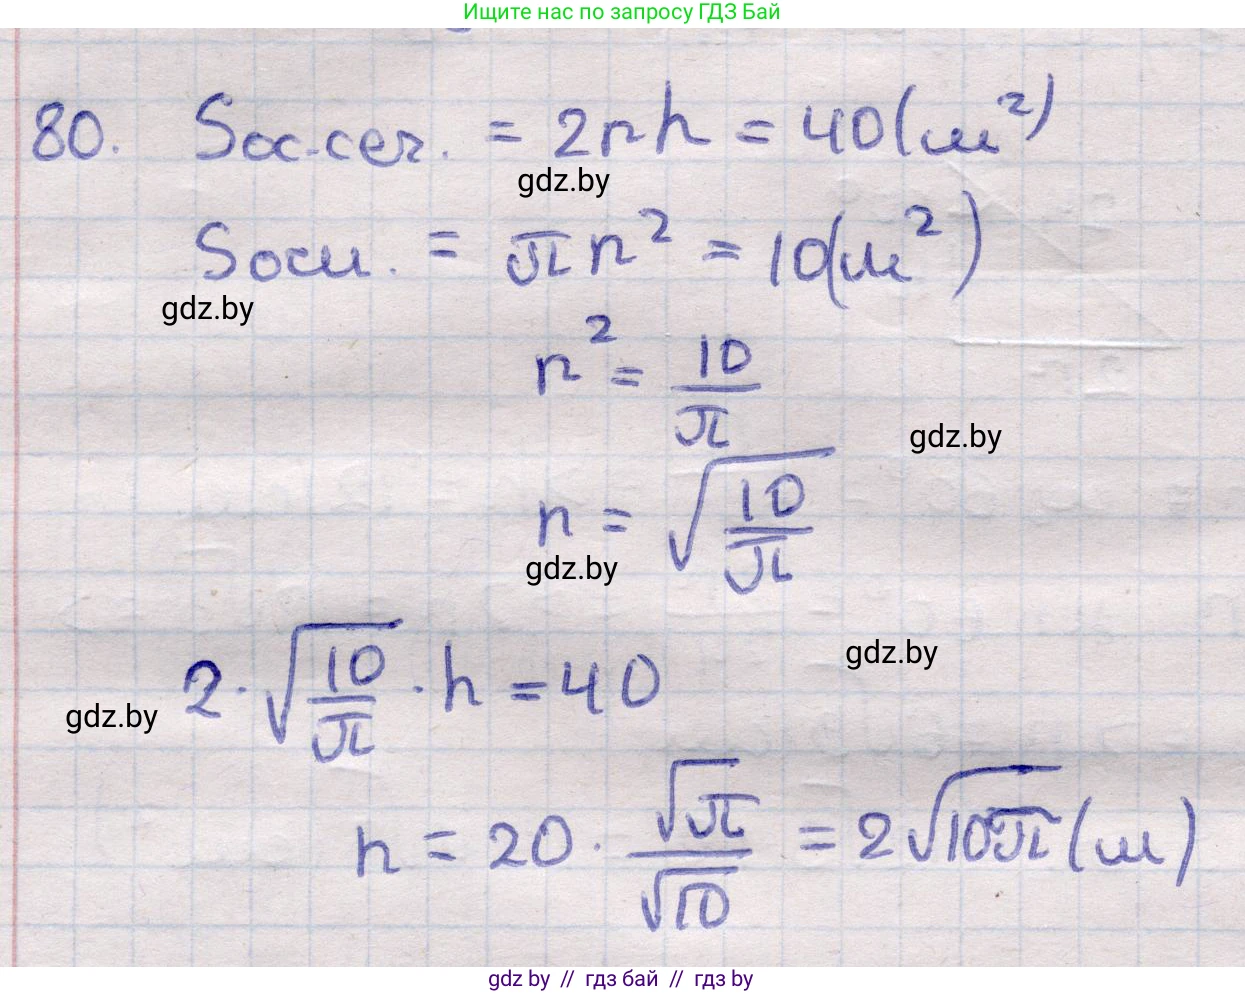 Ищите нас по запросу ГДЗ Бай
80. Sос.сеч. = 2rh = 40(м²)
gdz.by
Sосн. = πr² = 10(м²)
gdz.by
r² = 10/π
gdz.by
r = √(10/π)
gdz.by
gdz.by
2·√(10/π)·h = 40
gdz.by
h = 20·√π/√10 = 2√10π (м)
gdz by // гдз бай // гдз by